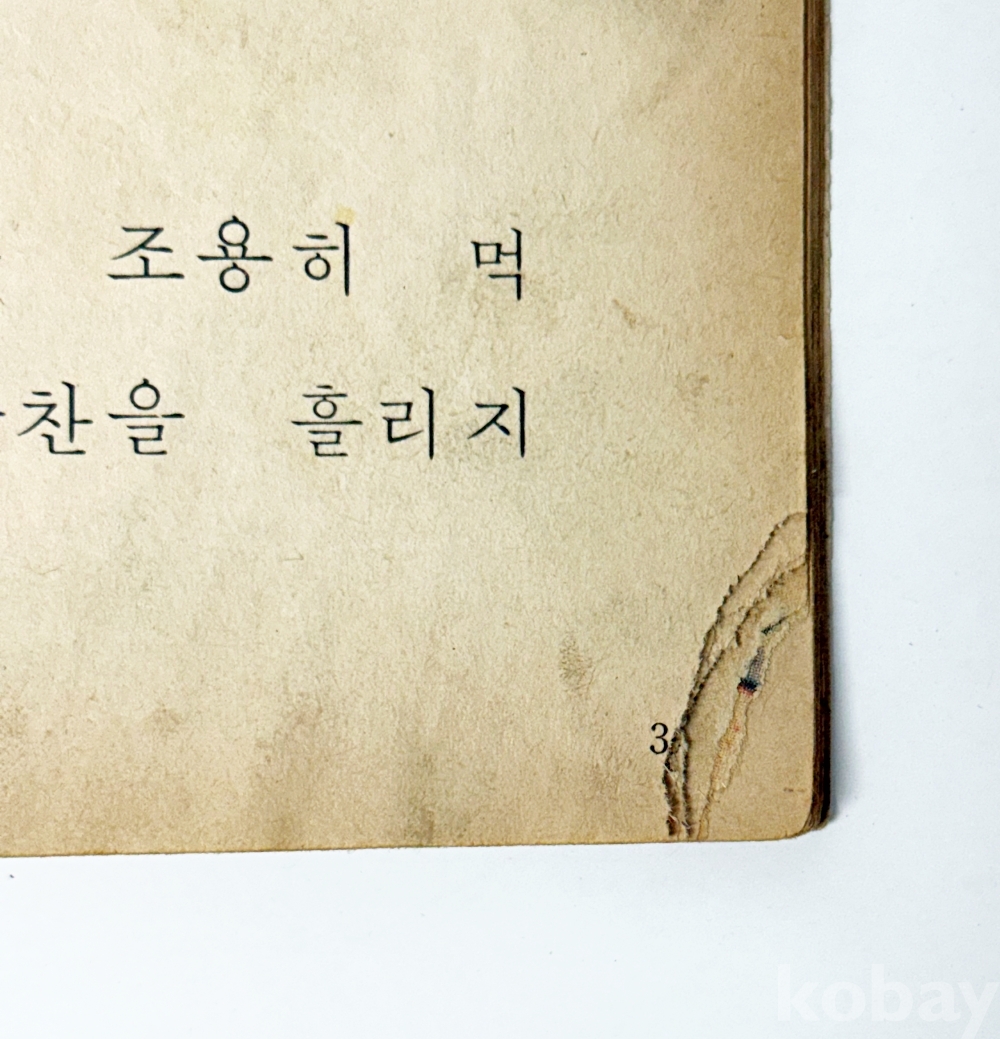 조용히 먹
찬을 흘리지
3
kobay